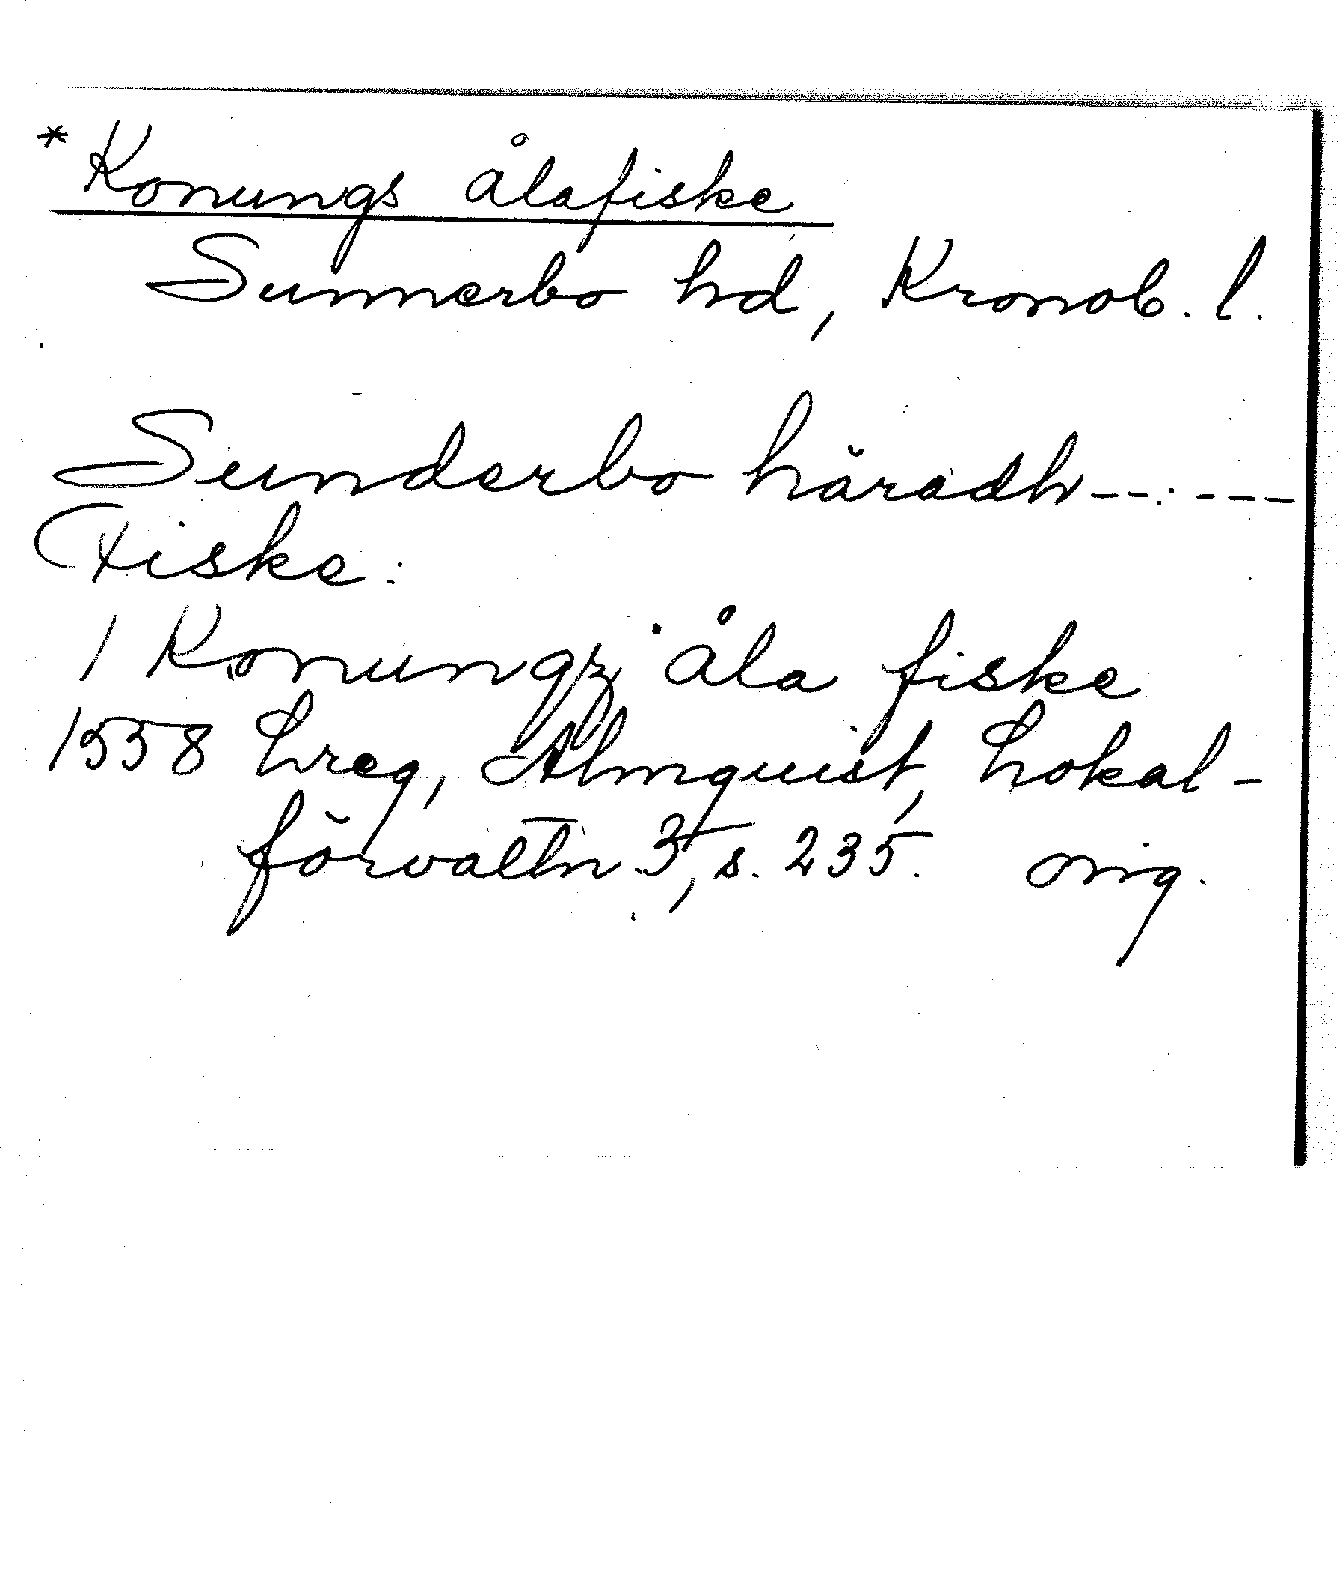 * Konungs ålafiske
Sunnerbo hd, Kronob. l.
Sunderbo häradh -- - ---
Fiske:
1 Konungz åla fiske
1558 Lreg, Almquist, Lokal-
förvaltn 3, s. 235. orig.